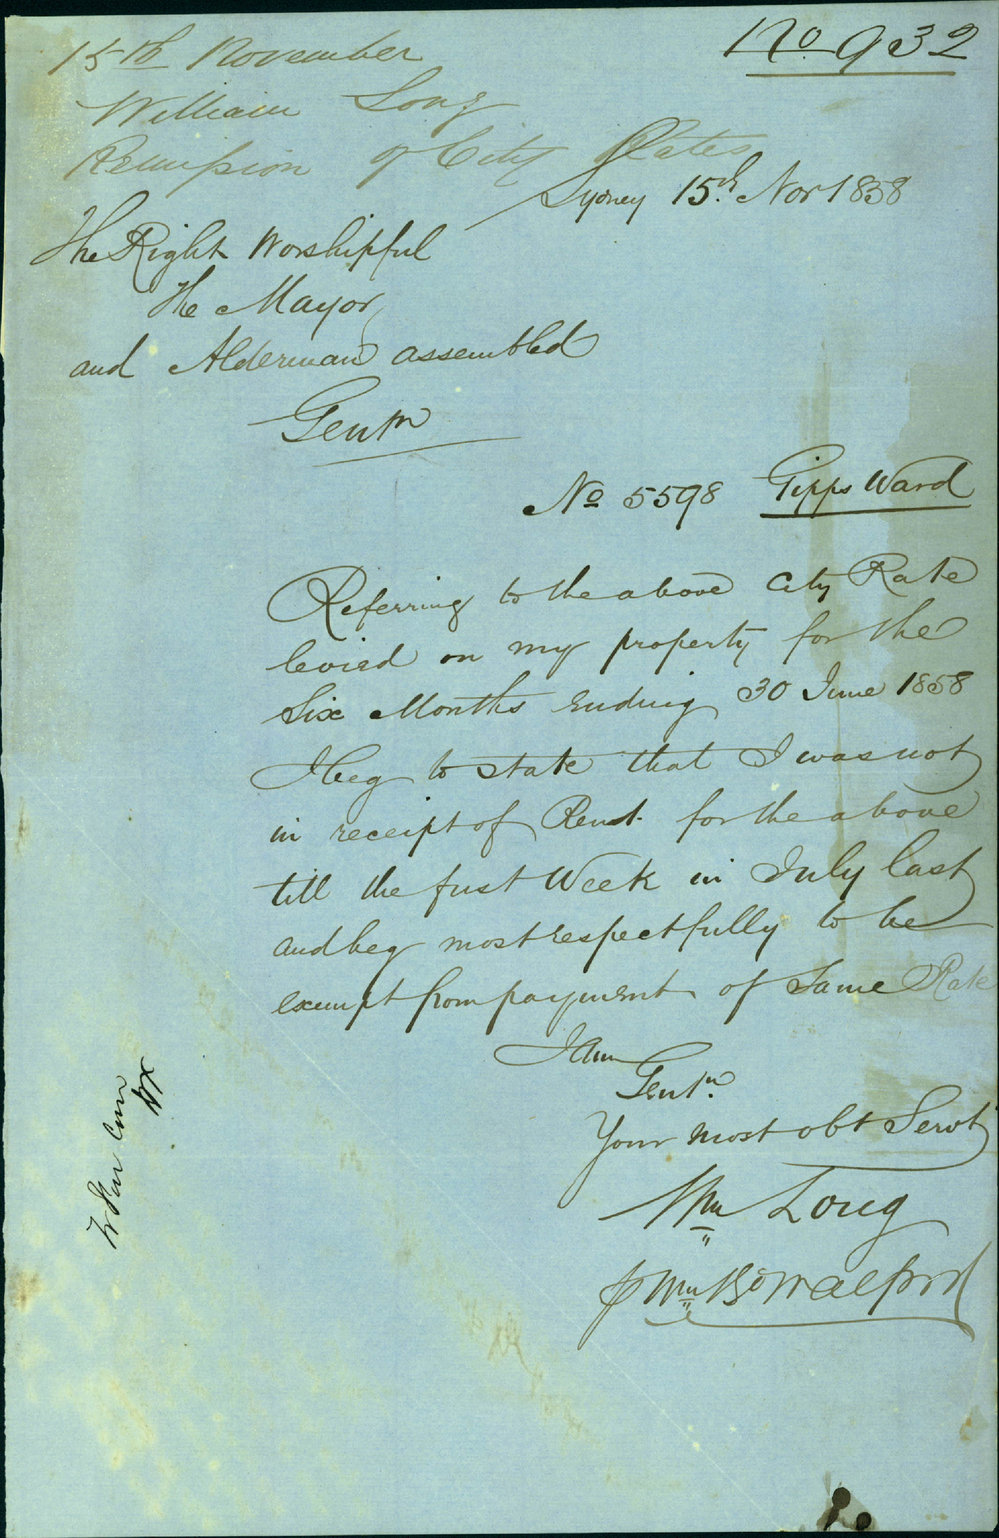 No 932
15th November
William Long
Remission of City Rates
Sydney 15th Nov 1858
The Right Worshipful
The Mayor
and Alderman assembled
Gentn
No 5598 Gipps Ward
Referring to the above City Rate
levied on my property for the
Six Months Ending 30 June 1858
I beg to state that I was not
in receipt of Rent for the above
till the first Week in July last
and beg most respectfully to be
exempt from payment of Same Rate
I am
Gentn.
Your most obt Servt
Wm Long
Wm Walford